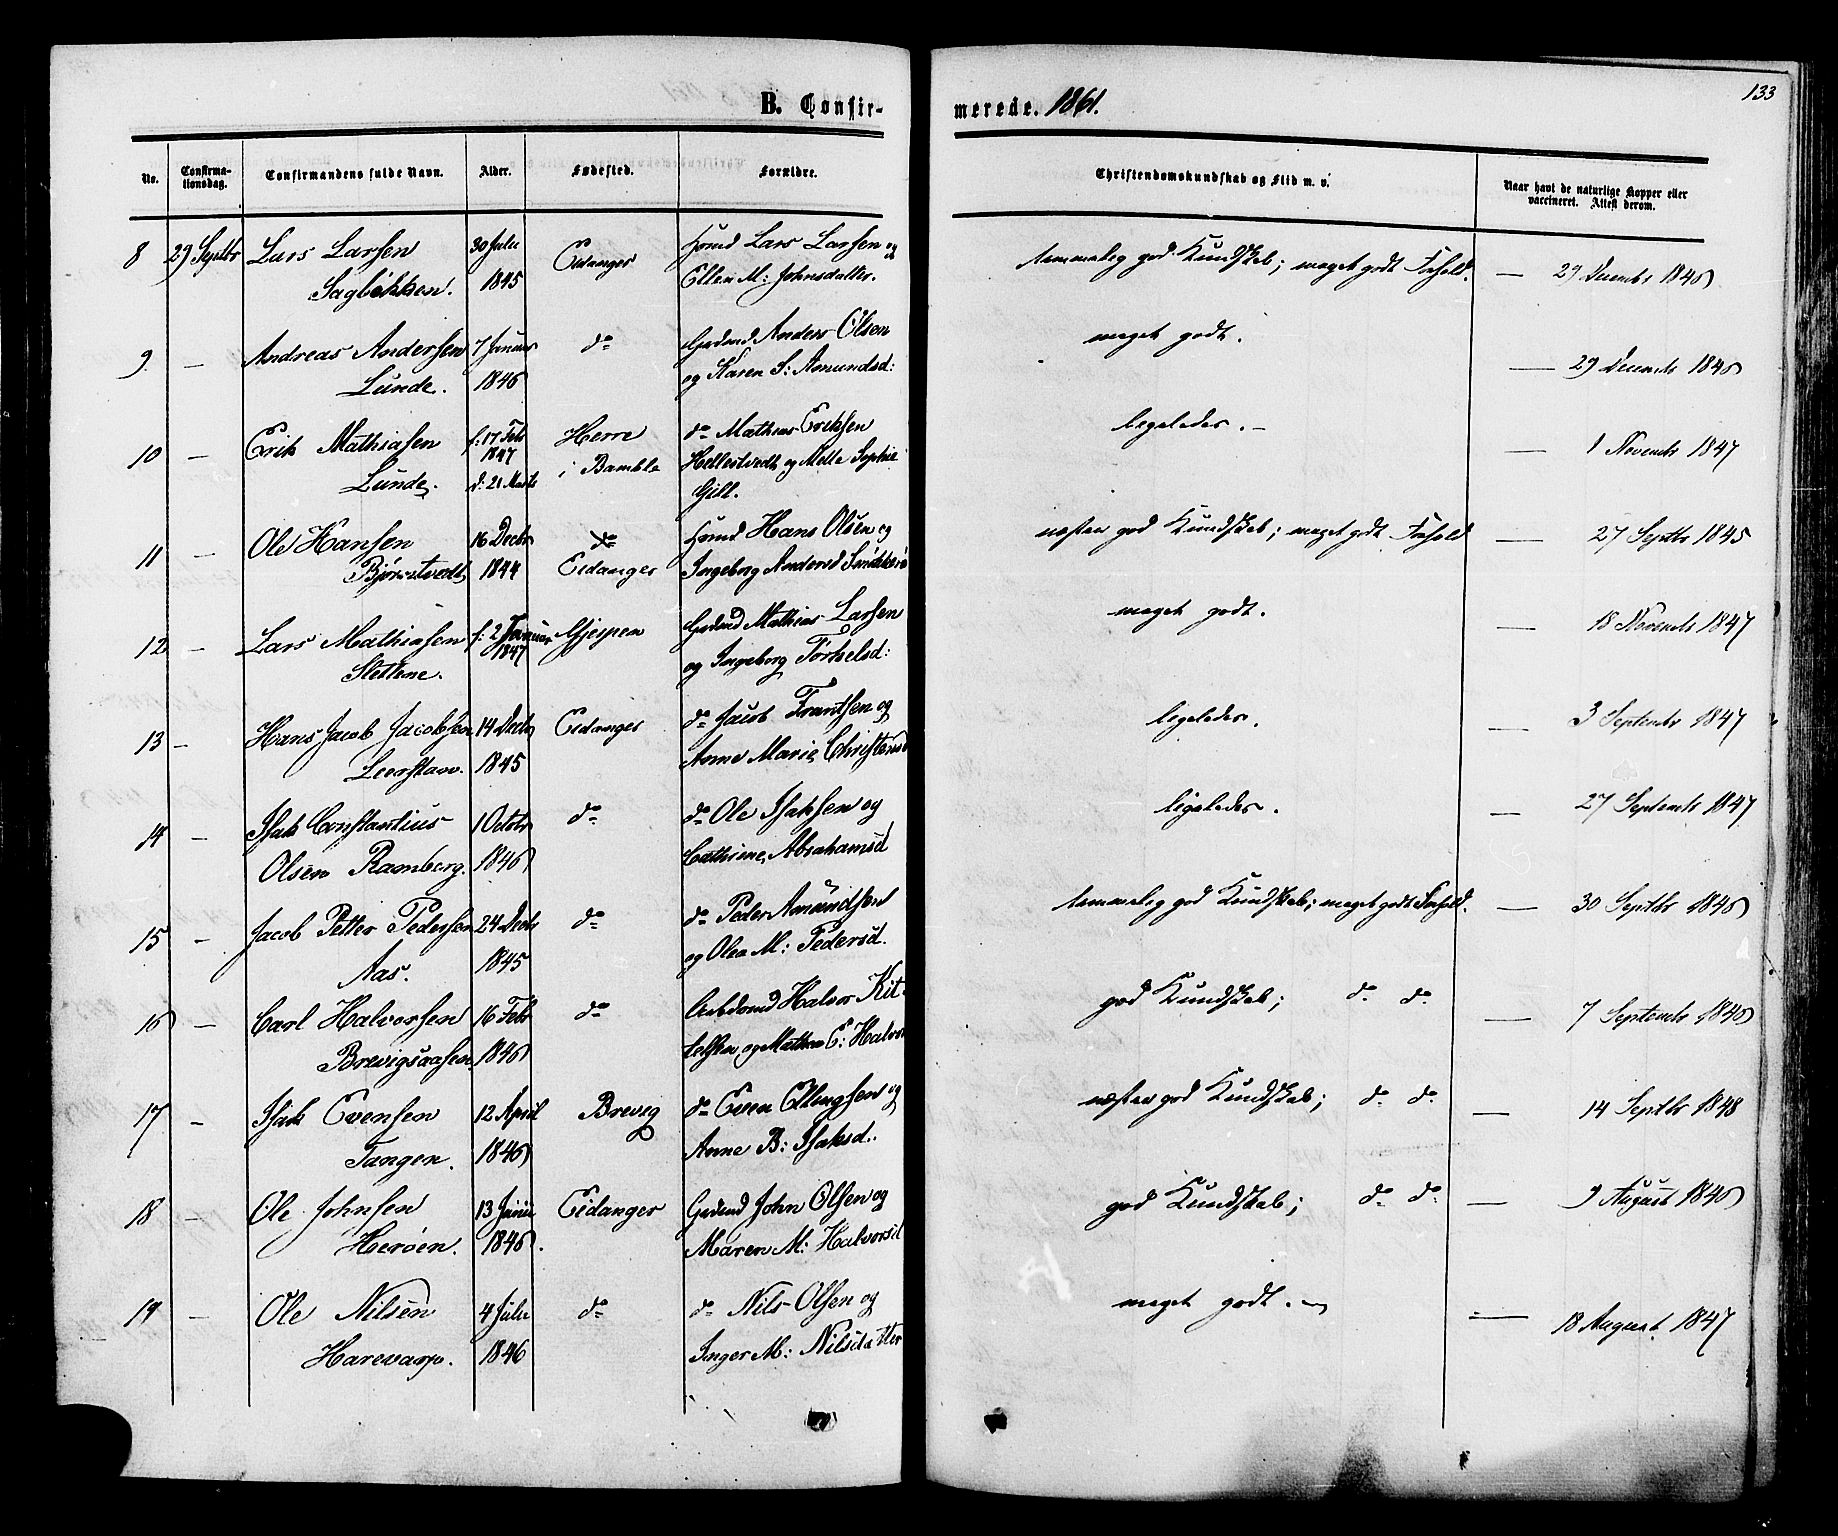 B. Confir-
merede. 1861.
133
No.
Confirma-
tionsdag.
Confirmandens fulde Navn.
Alder.
Fødested.
Forældre.
Christendomskundskab og Flid m. v.
Naar havt de naturlige Kopper eller
vaccineret. Attest derom.
8 29 Septbr Lars Larsen 30 Juli Eidanger Huusmd Lars Larsen og
Sagbakken. 1845 Ellen M: Johnsdatter.
temmelig god Kundskab; meget godt Forhold. — 29 Decembr 1846
9 — Andreas Andersen 7 Januar do Gaardmd Anders Olsen
Lunde. 1846 og Karen S: Amundsd:
meget godt. — 29 Decembr 1846
10 — Erik Mathiasen f: 17 Febr Herre do Mathias Eriksen
1847
Lunde. d: 21 Marts i Bamble Hellestvedt og Mette Sophie
Gill.
ligeledes. — — 1 Novembr 1847
11 — Ole Hansen 16 Decbr do Huusmd Hans Olsen og
Bjørnstvedt 1844 Eidanger Ingeborg Andersd
næsten god Kundskab; meget godt Forhold — 27 Septbr 1845
12 — Lars Mathiasen f: 2 Januar Gjerpen Gaardmd Mathias Larsen
1847
Slettene. og Ingeborg Torkelsd:
meget godt. — 18 Novembr 1847
13 — Hans Jacob Jacobsen 14 Decbr Eidanger do Jacob Frantsen og
Leerstang. 1845 Anne Marie Christensd
ligeledes. — 3 Septembr 1847
14 — Isak Constantius 1 Octobr do do Ole Isaksen og
Olsen Ramberg. 1846 Cathrine Abrahamsd
ligeledes. — 27 Septembr 1847
15 — Jacob Petter Pedersen 24 Decbr do do Peder Amundsen
Aas. 1845 og Olea M: Pedersd.
temmelig god Kundskab; meget godt Forhold. — 30 Septbr 1846
16 — Carl Halvorsen 16 Febr do Arbdsmd Halvor Kit-
Brevigsaasen. 1846 telsen og Mathea E: Halvors
god Kundskab; do do — 7 Septembr 1846
17 — Isak Evensen 12 April Brevig do Even Ellingsen og
Tangen. 1846 Anne B: Isaksd.
næsten god Kundskab; do do — 14 Septbr 1848
18 — Ole Johnsen 13 Juni Eidanger Gaardmd John Olsen og
Herøen. 1846. Maren M: Halvorsd
god Kundskab; do do — 9 August 1846
19 — Ole Nilsen 4 Juli do do Nils Olsen og
Harevarp. 1846 Inger M: Nilsdatter
meget godt. — — 18 August 1847